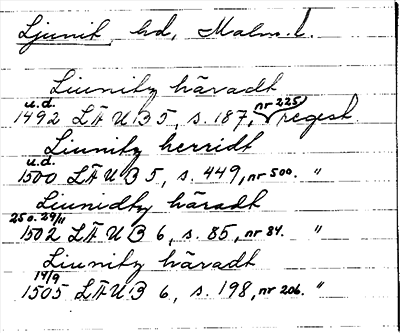 Ljunit, hd, Malm. l.
Liunitz häradt
u.d. 1492 LÄUB 5, s. 187, nr 225, regest.
Liunitz herridt
u.d. 1500 LÄUB 5, s. 449, nr 500. "
Liunidtz häradt
29/11 1502 LÄUB 6, s. 85, nr 84. "
Liunitz häradt
14/9 1505 LÄUB 6, s. 198, nr 206. "